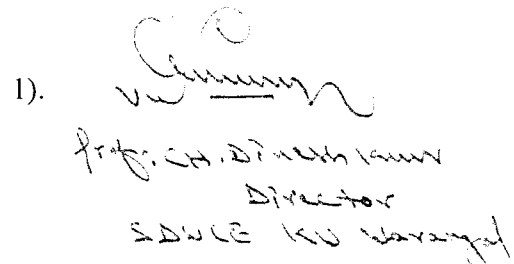 1).
Prof. CH. Dinesh Kumar
Director
SDLCE KU Warangal